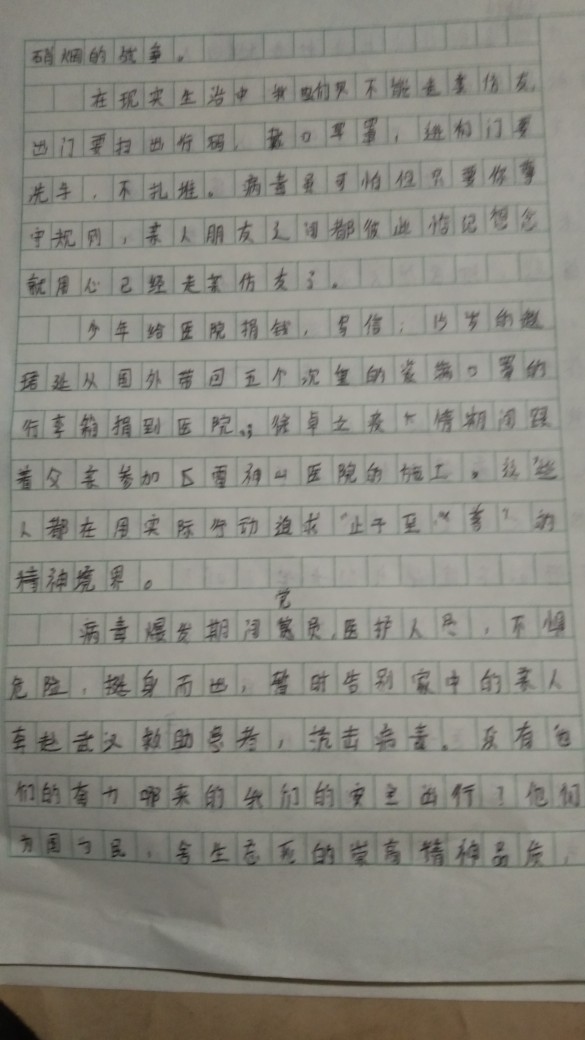 硝烟的战争。
在现实生活中我们只不能走亲仿友,
出门要扫出行码,戴口罩罩,进门要
洗手,不扎堆。病毒虽可怕但只要你尊
守规则,亲人朋友之间都彼此惦记想念
就用心已经走亲仿友了。
少年给医院捐钱,写信;15岁的赵
珺延从国外带回五个沉重的装满口罩的
行李箱捐到医院。;徐卓立疫情期间跟
着父亲参加雷神山医院的施工。这些
人都在用实际行动追求“止于至善”的
精神境界。
党
病毒爆发期间员,医护人员,不惧
危险,挺身而出,暂时告别家中的亲人
奔赴武汉救助患者,抗击病毒。没有他
们的奋力哪来的我们的安全出行?他们
为国为民,舍生忘死的崇高精神品质,